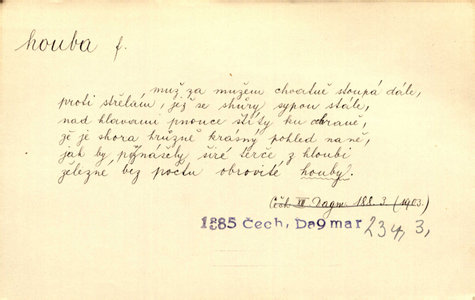 houba f.
muž za mužem chvatně stoupá dále,
proti střelám, jež se shůry sypou stále,
nad hlavami pnouce štíty ku obraně,
že je shora hrůzně krásný pohled na ně,
jak by přinášely širé terče, z hloubi
železné bez počtu obrovité houby.
Čch. XII Dagm. 188. 3. (1903.)
1885 Čech, Da9mar 234, 3,